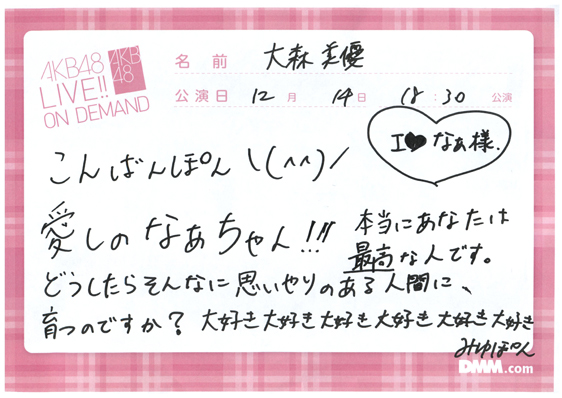 AKB48
LIVE!!
ON DEMAND
AKB
48
名前 大森美優
公演日 12月 14日 18:30 公演
I♥なぁ様.
こんばんぽん \(^^)/
愛しのなぁちゃん!!!
本当にあなたは
最高な人です。
どうしたらそんなに思いやりのある人間に、
育つのですか? 大好き大好き大好き大好き大好き大好き
みゆぽん
DMM.com